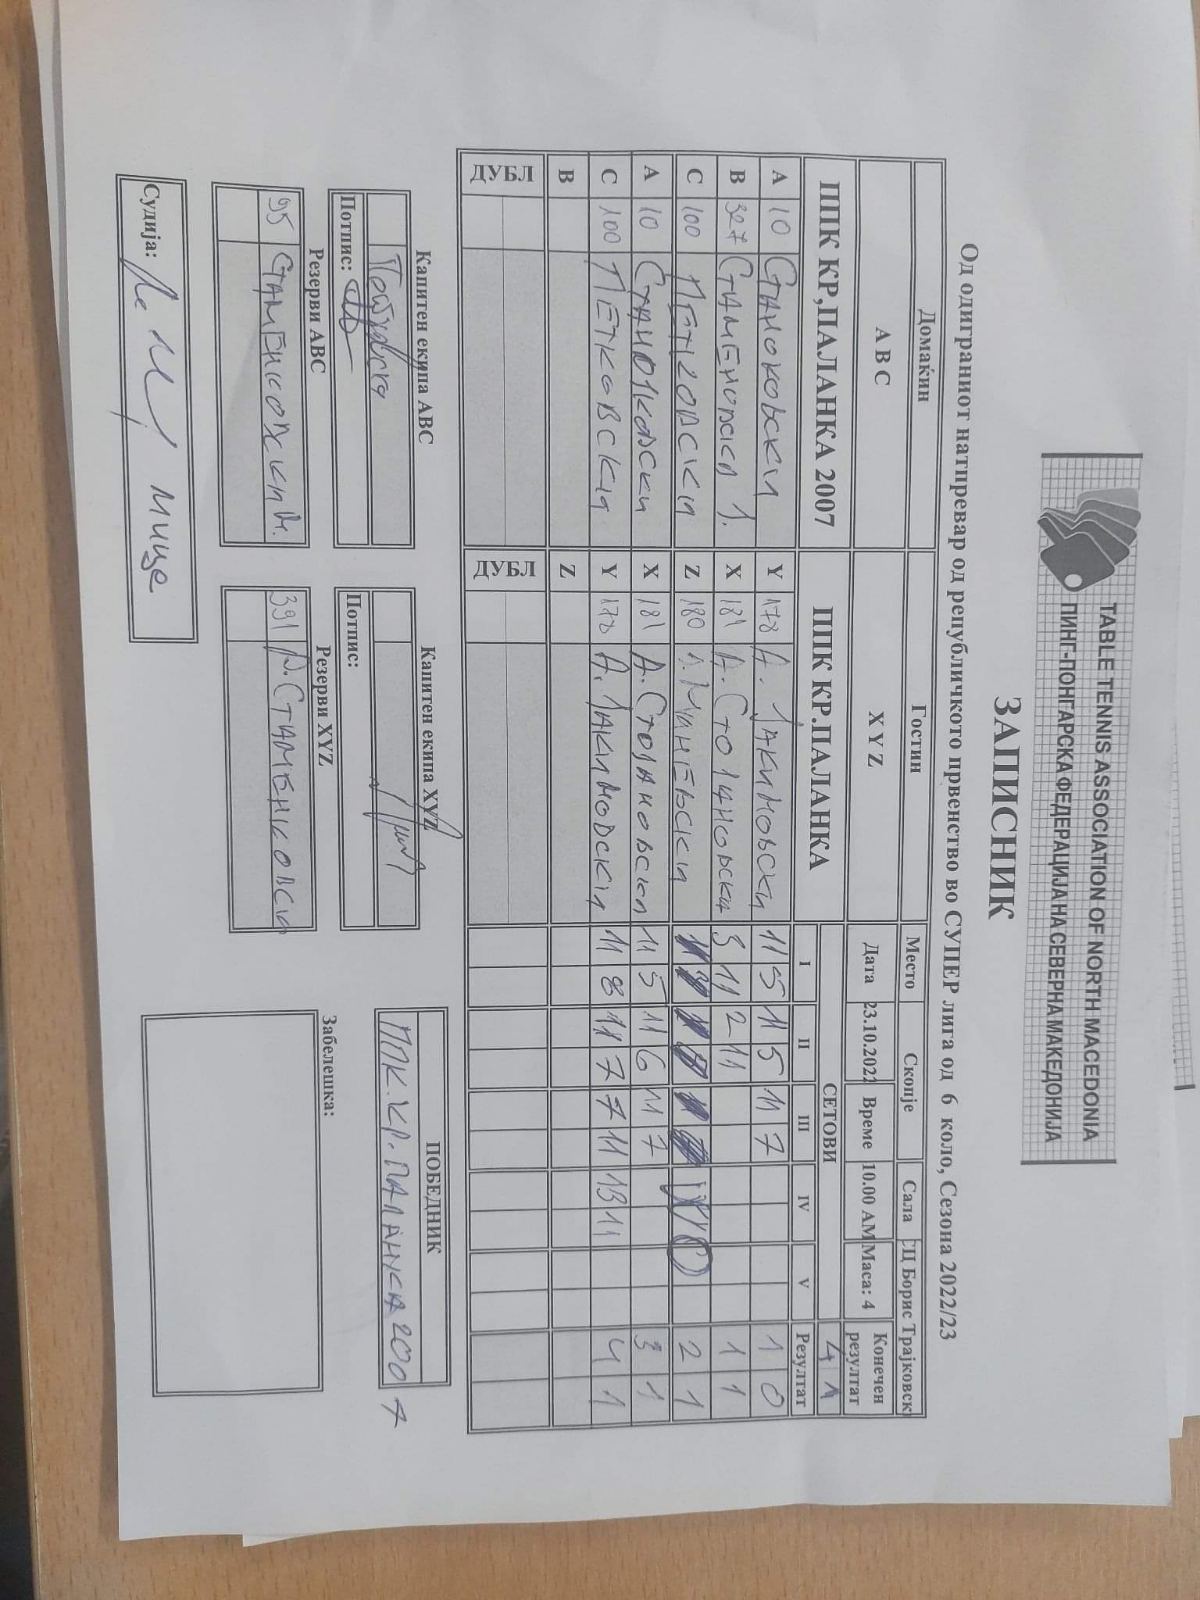 TABLE TENNIS ASSOCIATION OF NORTH MACEDONIA
ПИНГ-ПОНГАРСКА ФЕДЕРАЦИЈА НА СЕВЕРНА МАКЕДОНИЈА
ЗАПИСНИК
Од одиграниот натпревар од републичкото првенство во СУПЕР лига од 6 коло, Сезона 2022/23
Домаќин Гостин Место Скопје Сала СЦ Борис Трајковск
A B C X Y Z Дата 23.10.2022 Време 10.00 AM Маса: 4 Конечен резултат
ППК КР,ПАЛАНКА 2007 ППК КР.ПАЛАНКА СЕТОВИ 4 1
I II III IV V Резултат
A 10 Станоковски Y 178 А. Јакимовски 11 5 11 5 11 7 1 0
B 327 Стаменовски Ј. X 181 А. Стојановски 3 11 2 11 1 1
C 100 Петковски Z 180 Маневски 2 1
A 10 Станоковски X 181 А. Стојановски 11 5 11 6 11 7 3 1
C 100 ПЕТКОВСКИ Y 178 А. Јакимовски 11 8 11 7 7 11 13 11 4 1
B Z
ДУБЛ ДУБЛ
Капитен екипа ABC Капитен екипа XYZ ПОБЕДНИК
ППК.КР.ПАЛАНКА 2007
Потпис: Потпис:
Резерви ABC Резерви XYZ Забелешка:
95 СТАМЕНКОВСКИ М. 391 СТАМЕНКОВСКИ
Судија: Мице